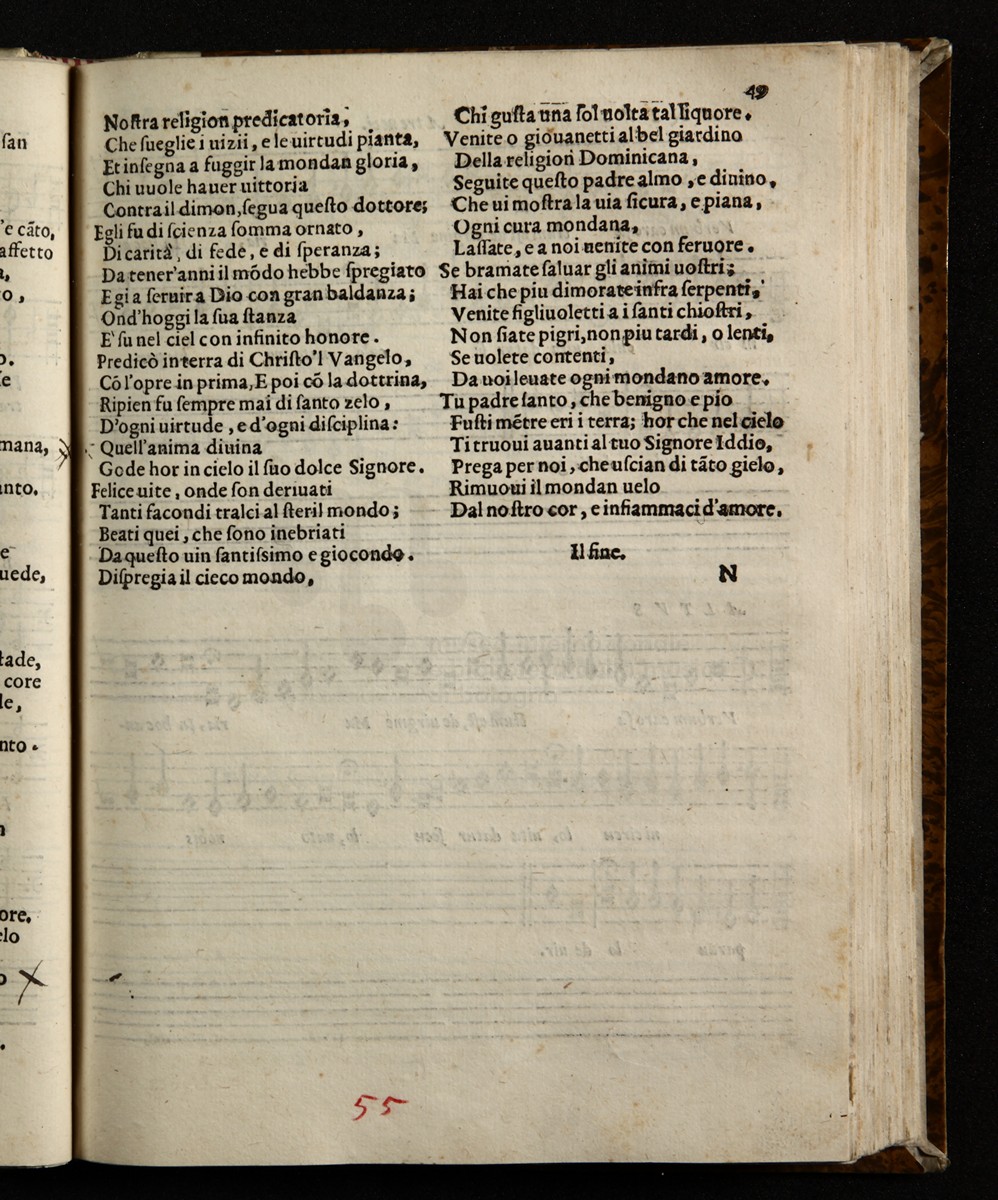 49
Noſtra religion predicatoria,
Che ſueglie i uizii, e le uirtudi pianta,
Et inſegna a fuggir la mondan gloria,
Chi uuole hauer uittoria
Contra il dimon, ſegua queſto dottore;
Egli fu di ſcienza ſomma ornato,
Di carità, di fede, e di ſperanza;
Da tener'anni il mōdo hebbe ſpregiato
E gi a ſeruir a Dio con gran baldanza;
Ond'hoggi la ſua ſtanza
E' ſu nel ciel con infinito honore.
Predicò in terra di Chriſto'l Vangelo,
Cō l'opre in prima, E poi cō la dottrina,
Ripien fu ſempre mai di ſanto zelo,
D'ogni uirtude, e d'ogni diſciplina:
Quell'anima diuina
Gode hor in cielo il ſuo dolce Signore.
Felice uite, onde ſon deriuati
Tanti facondi tralci al ſteril mondo;
Beati quei, che ſono inebriati
Da queſto uin ſantiſsimo e giocondo.
Diſpregia il cieco mondo,
Chi guſta una ſol uolta tal liquore.
Venite o giouanetti al bel giardino
Della religion Dominicana,
Seguite queſto padre almo, e diuino,
Che ui moſtra la uia ſicura, e piana,
Ogni cura mondana,
Laſſate, e a noi uenite con feruore.
Se bramate ſaluar gli animi uoſtri;
Hai che piu dimorate infra ſerpenti,
Venite figliuoletti a i ſanti chioſtri,
Non ſiate pigri, non piu tardi, o lenti,
Se uolete contenti,
Da uoi leuate ogni mondano amore.
Tu padre ſanto, che benigno e pio
Fuſti mētre eri i terra; hor che nel cielo
Ti truoui auanti al tuo Signore Iddio,
Prega per noi, che uſcian di tāto gielo,
Rimuoui il mondan uelo
Dal noſtro cor, e infiammaci d'amore.
Il fine.
N
55